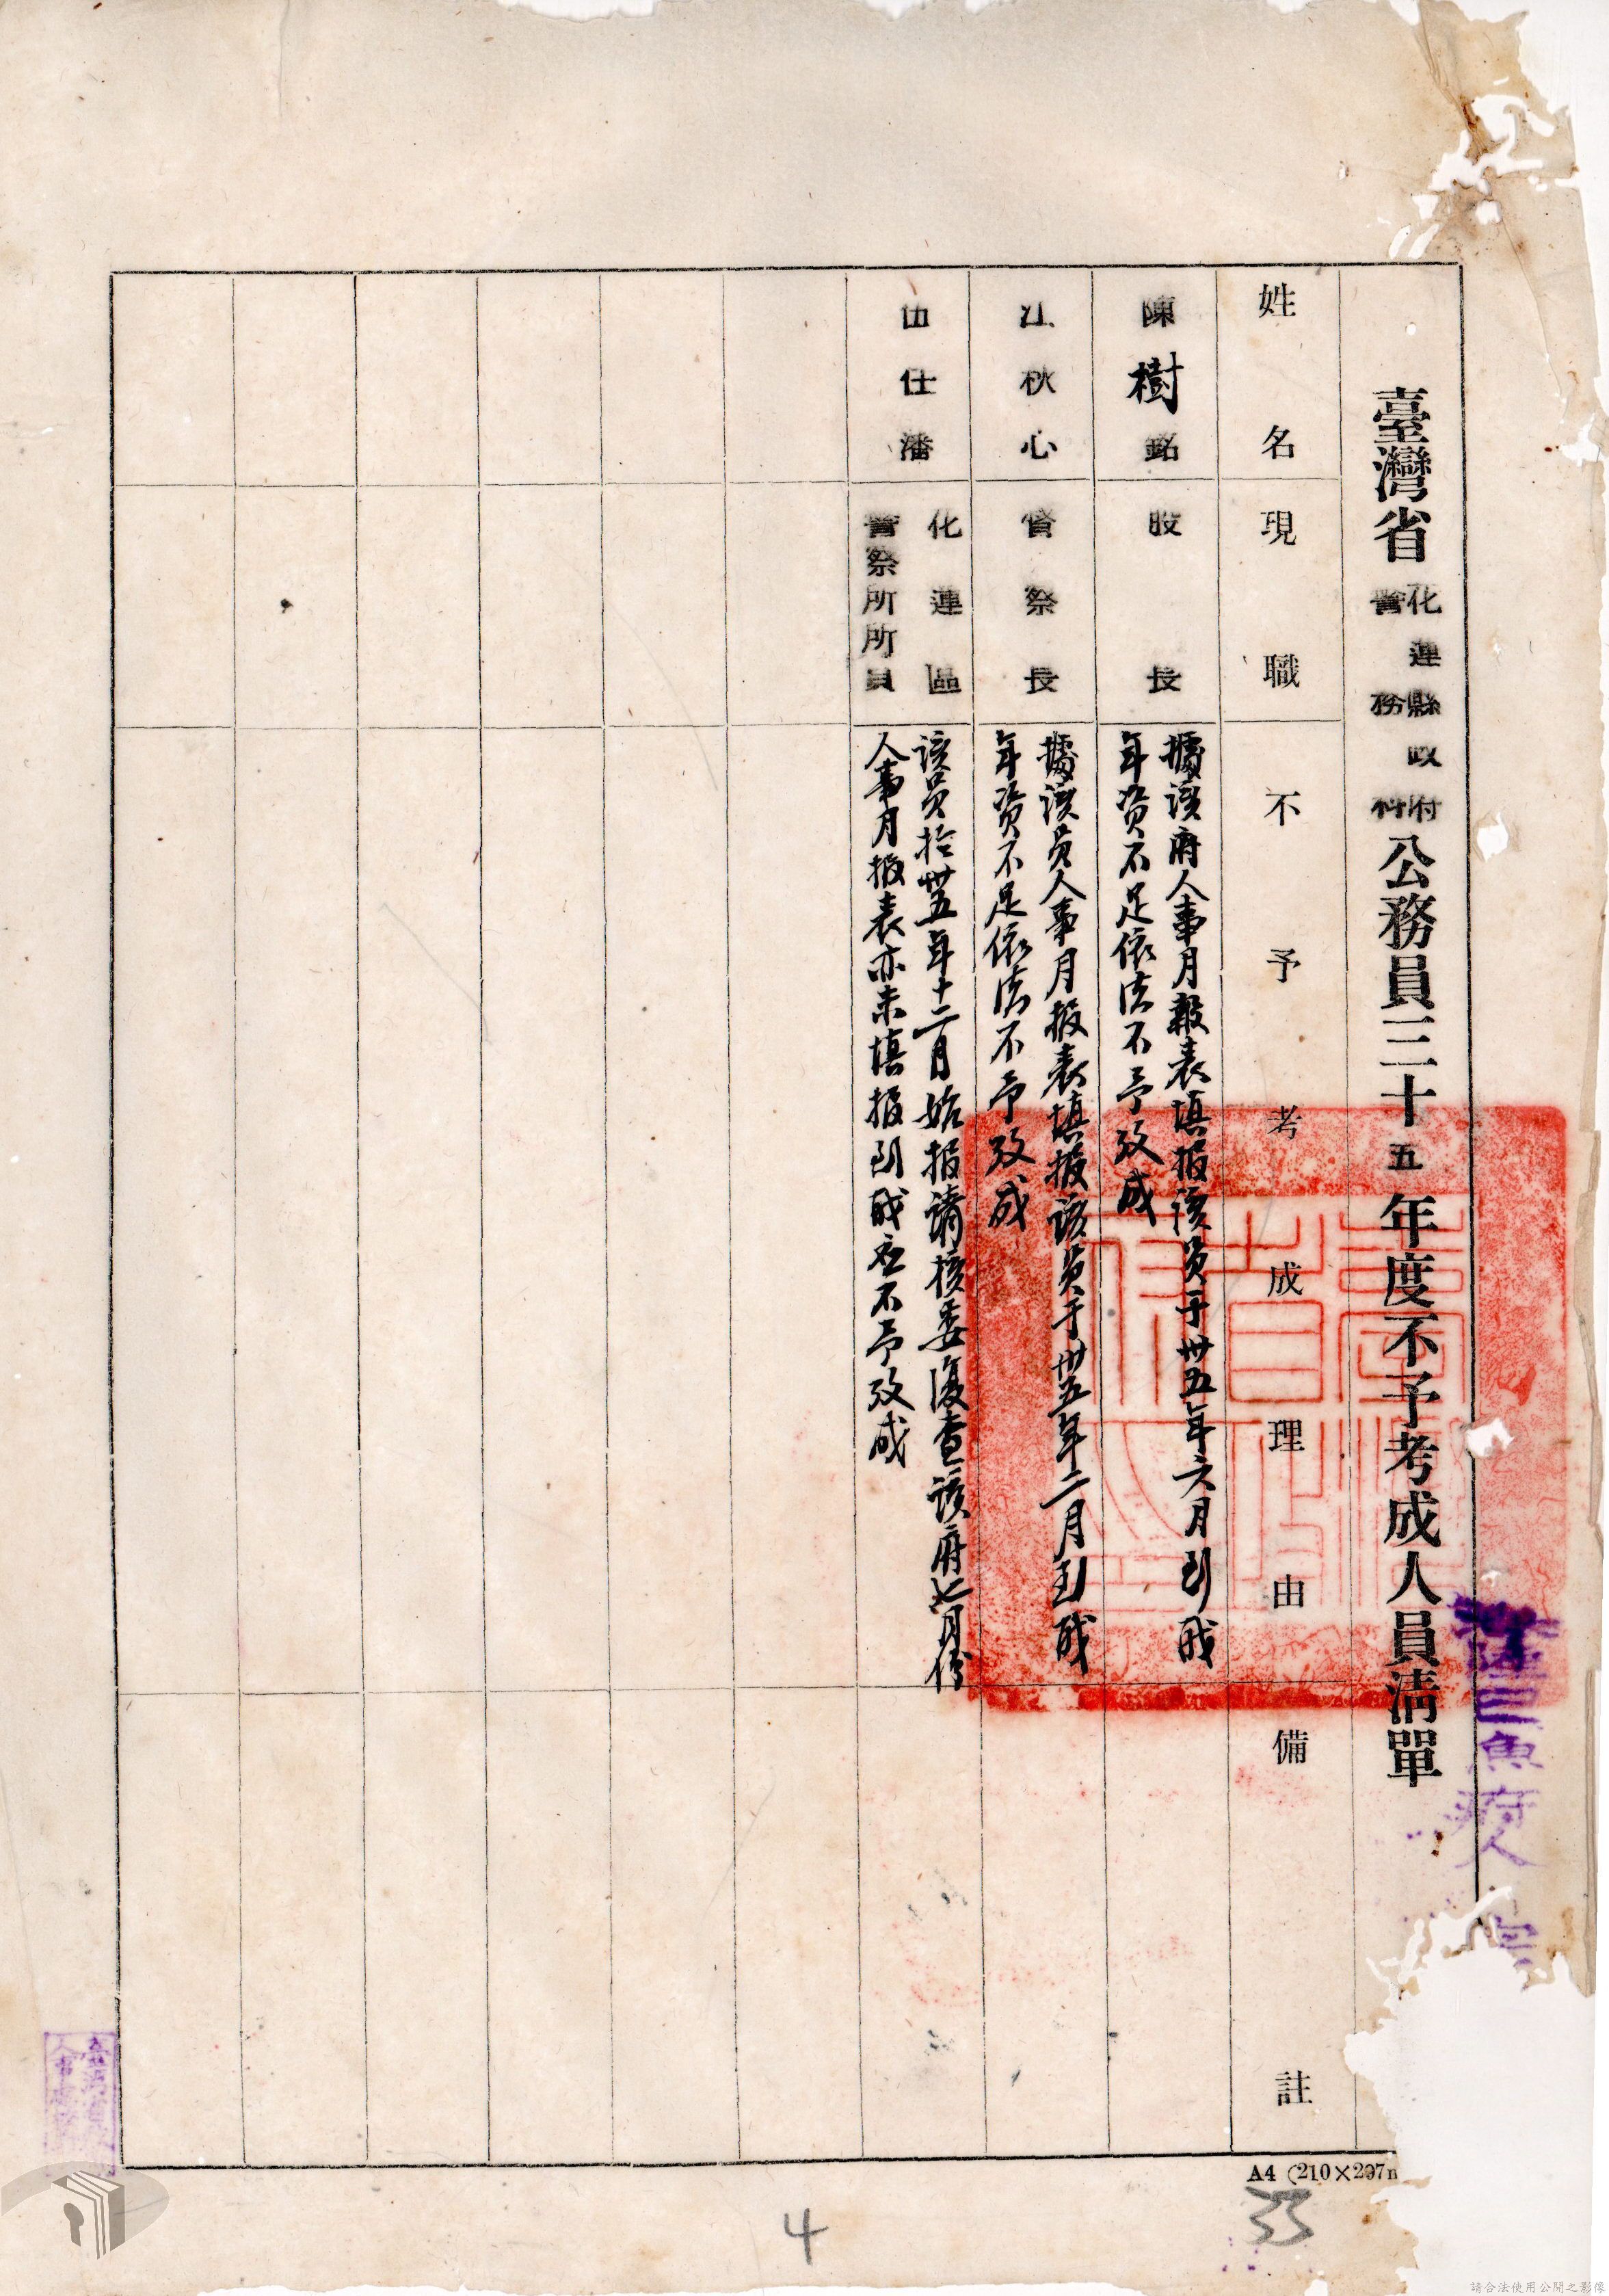 臺灣省花蓮縣政府警務科公務員三十五年度不予考成人員清單
姓名
現職
不予考成理由
備註
陳樹銘
股長
據該府人事月報表填报該員于卅五年六月到职
年资不足依法不予攷成
江秋心
督察長
據該員人事月报表填报該員于卅五年二月到职
年资不足依法不予攷成
伍仕潘
花蓮區
警察所所員
該員於卅五年十二月始报請核委復查該府七月份
人事月报表亦未填报到职應不予攷成
A4 (210×297m
4
33
請合法使用公開之影像